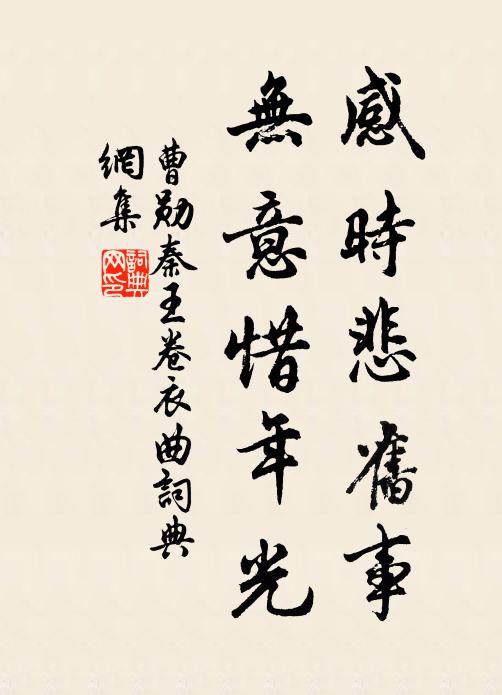 感時悲舊事
無意惜年光
曹勛秦王卷衣曲詞典
網集
詞典
网印